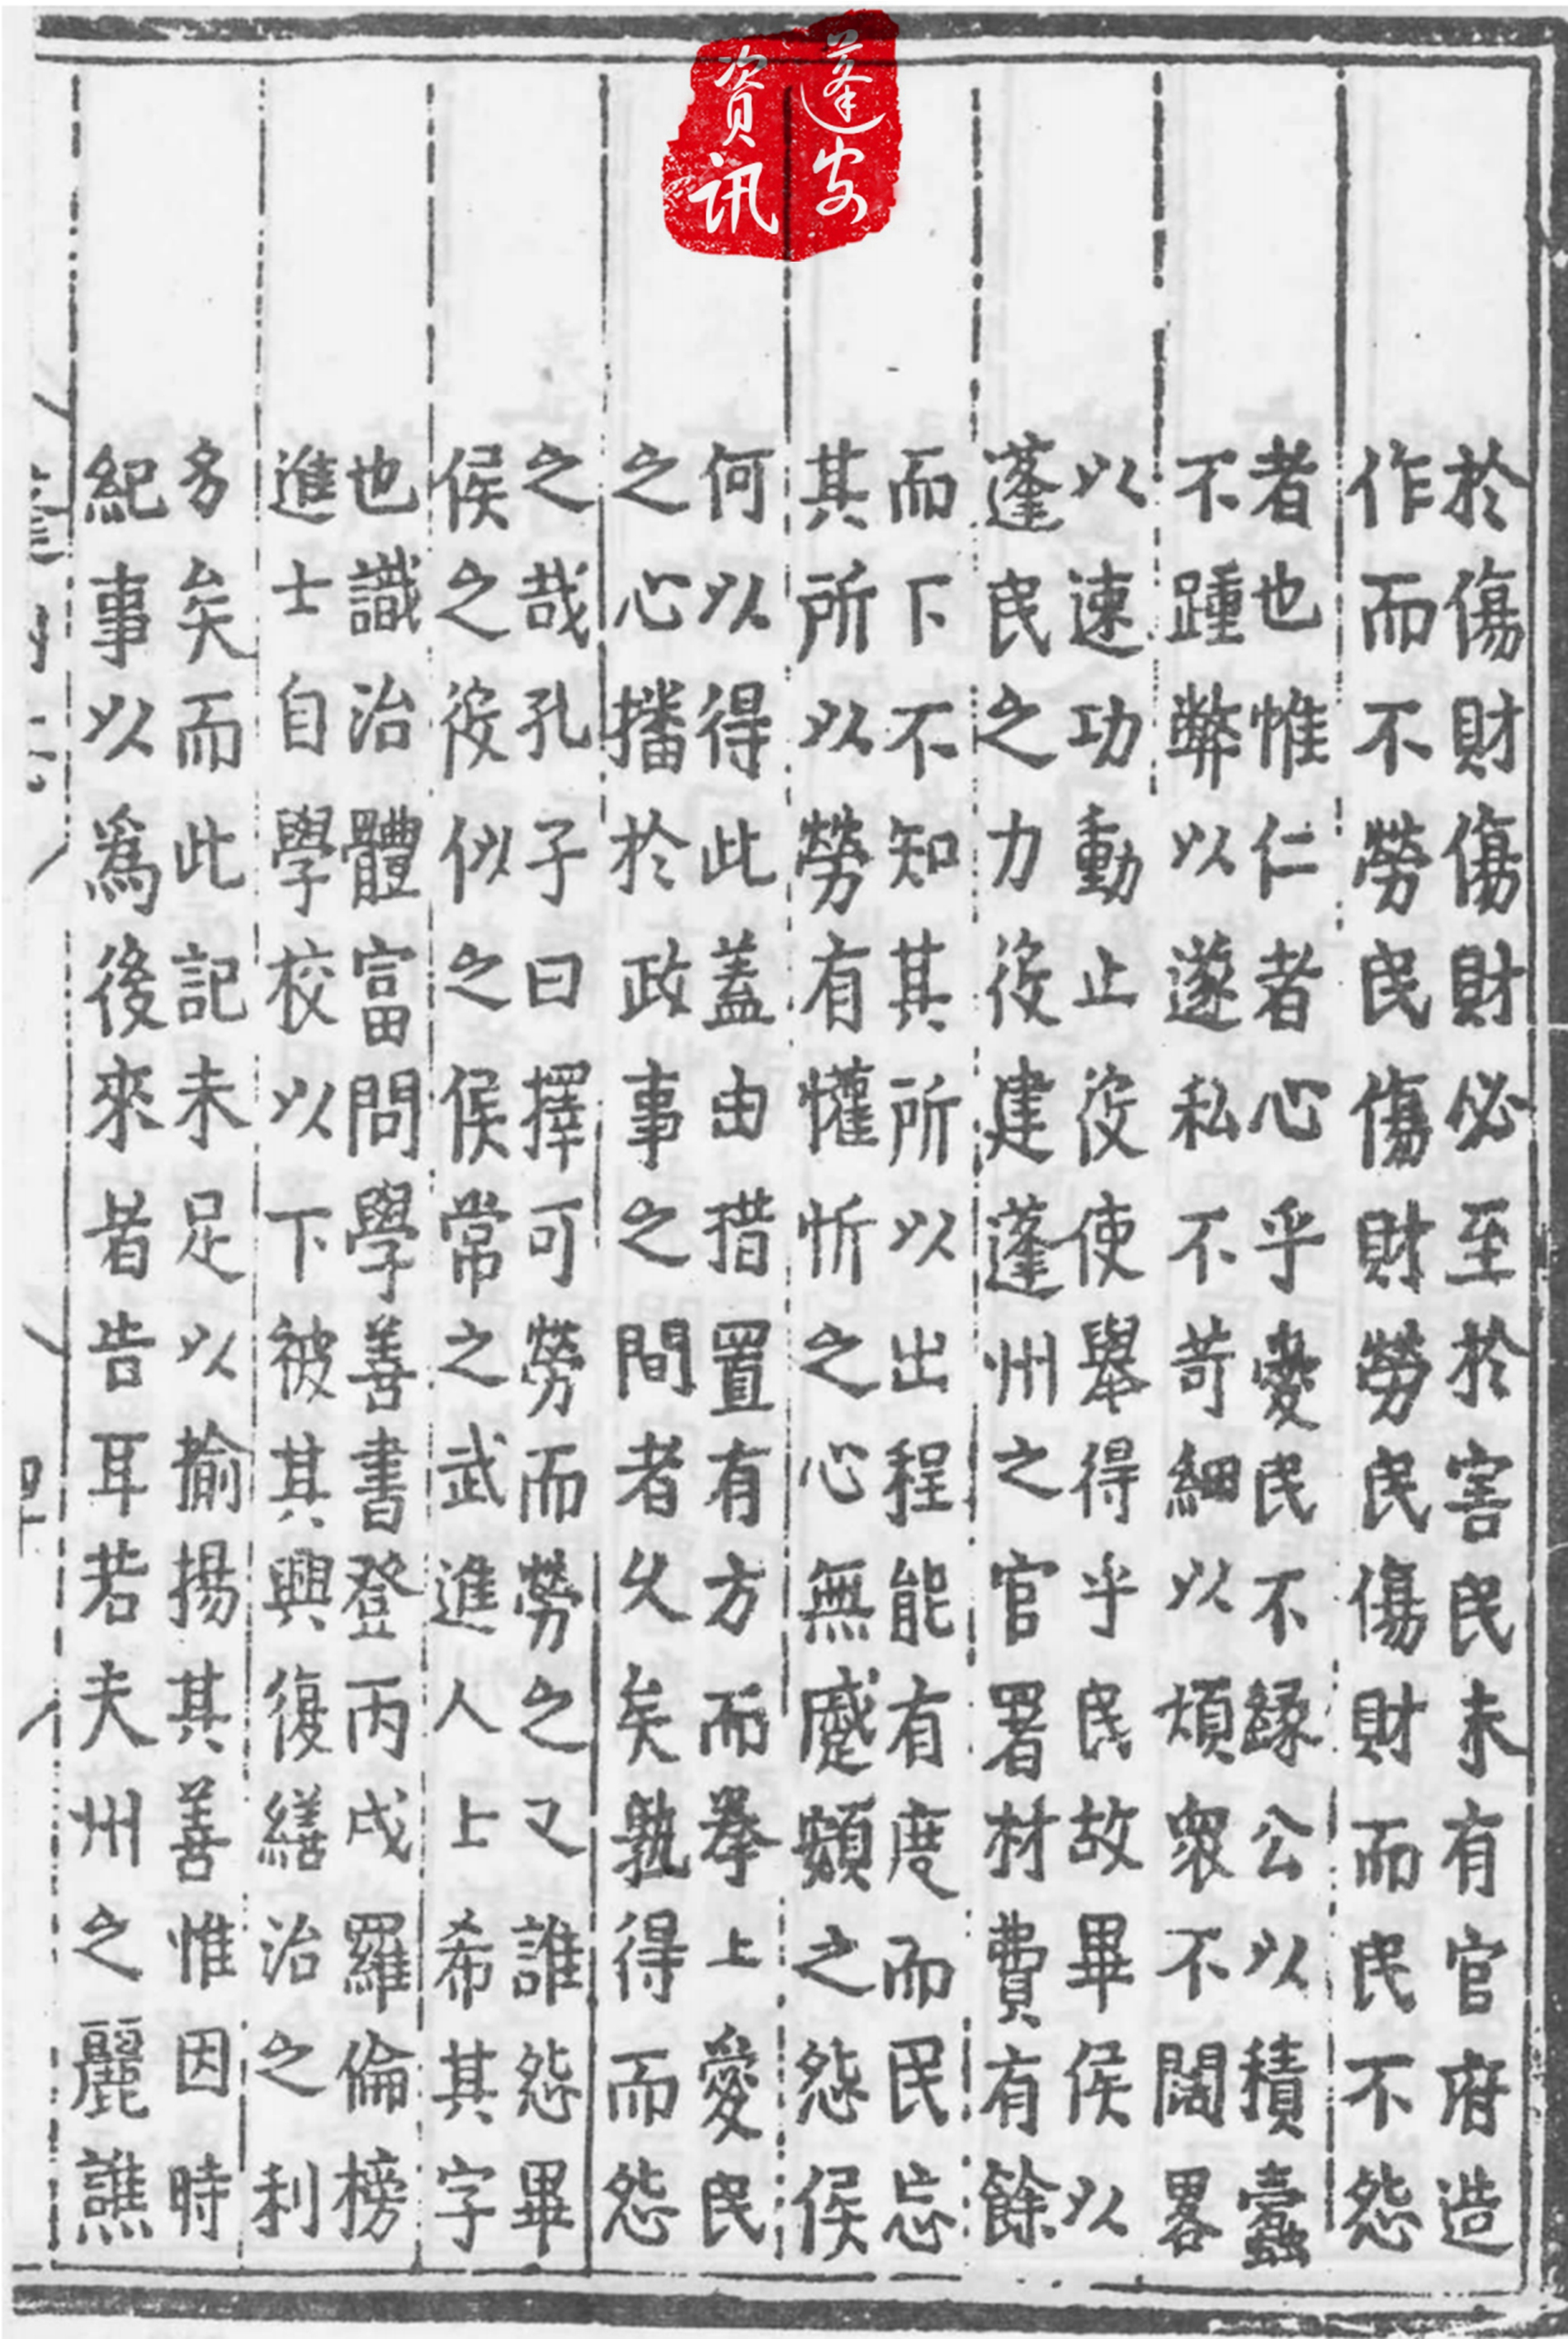 蓬安
資訊
於傷財傷財必至於害民未有官府造
作而不勞民傷財勞民傷財而民不怨
者也惟仁者心乎愛民不緣公以積蠹
不踵弊以遂私不苛細以煩衆不闊畧
以速功動止役使舉得乎民故畢侯以
蓬民之力役建蓬州之官署材費有餘
而下不知其所以出程能有度而民忘
其所以勞有懽忻之心無蹙頞之怨侯
何以得此蓋由措置有方而奉上愛民
之心播於政事之間者久矣孰得而怨
之哉孔子曰擇可勞而勞之又誰怨畢
侯之役似之侯常之武進人上希其字
也識治體富問學善書登丙戌羅倫榜
進士自學校以下被其興復繕治之利
多矣而此記未足以揄揚其善惟因時
紀事以爲後來者告耳若夫州之麗譙